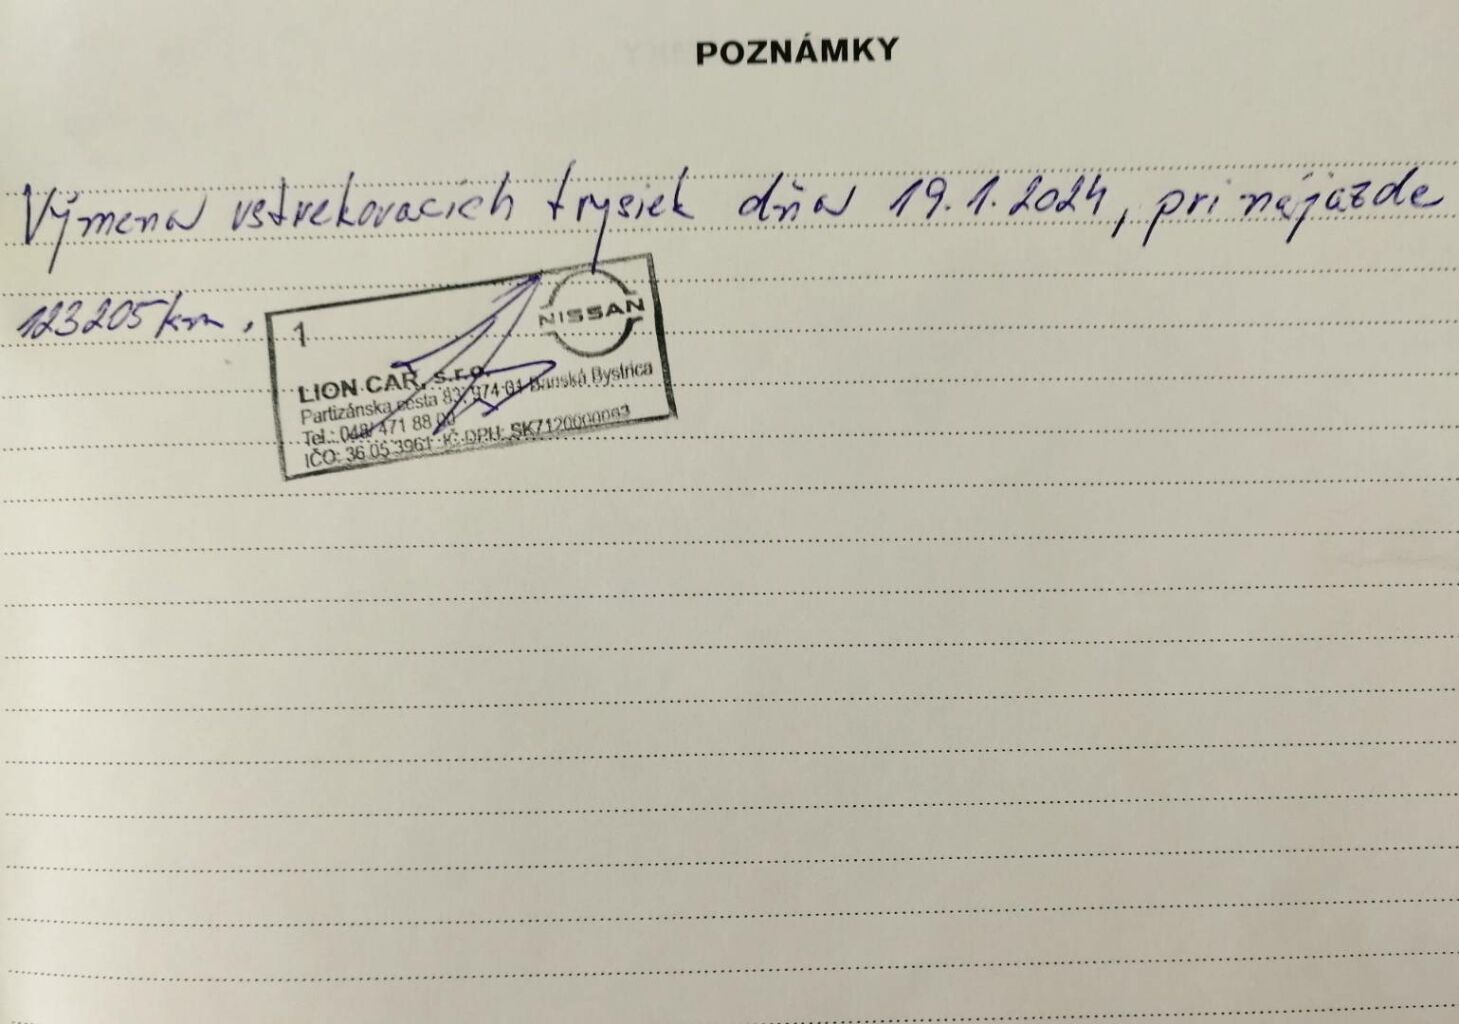 POZNÁMKY
Výmena vstrekovacích trysiek dňa 19.1.2024, pri nájazde
123205 km.
1
NISSAN
LION CAR, s.r.o.
Partizánska cesta 83, 974 01 Banská Bystrica
Tel.: 048/ 471 88 00
IČO: 36 05 3961 IČ DPH: SK7120000063